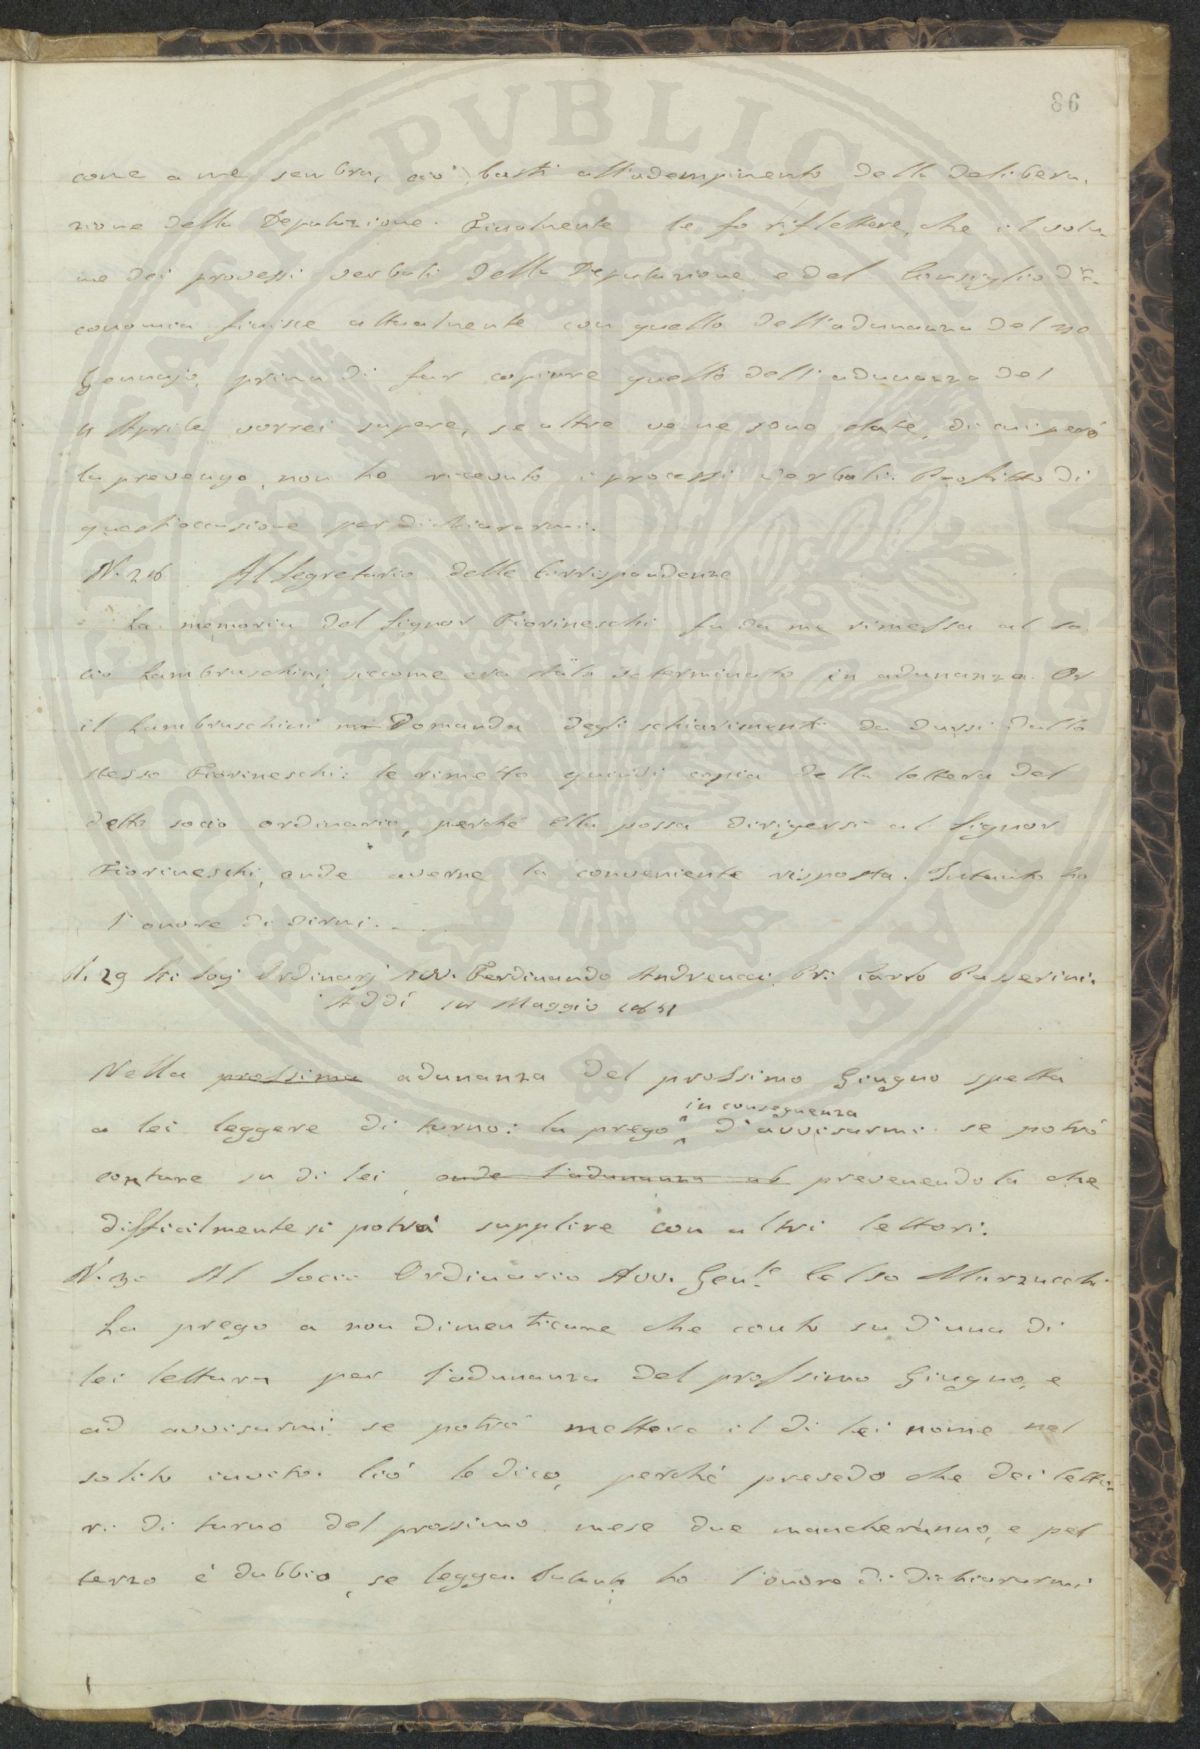 86
come a me sembra, ciò basti all'adempimento della delibera,
zione della Deputazione. Finalmente le fo riflettere, che il volu
me dei processi verbali della Deputazione e del Consiglio d'E-
conomia finisce attualmente con quello dell'adunanza del 20
Gennajo, prima di far copiare quello dell'adunanza del
4 Aprile vorrei sapere, se altre ve ne sono state, di cui però
la prevengo, non ho ricevuto i processi verbali. Profitto di
quest'occasione per dichiararmi.
N. 28 Al Segretario delle Corrispondenze
La memoria del Signor Fiorineschi fu da me rimessa al so
cio Lambruschini, siccome era stato determinato in adunanza. Or
il Lambruschini mi domanda degli schiarimenti da darsi dallo
stesso Fiorineschi: le rimetto quindi copia della lettera del
detto socio ordinario, perché ella possa dirigersi al Signor
Fiorineschi, onde averne la conveniente risposta. Intanto ho
l'onore di dirmi.
N. 29 Ai Socj Ordinarj Avv. Ferdinando Andreucci, Pri: Carlo Passerini.
Addì Maggio 1851
Nella prossima adunanza del prossimo Giugno spetta
a lei leggere di turno: la prego in conseguenza d'avvisarmi se potrò
contare su di lei, onde l'adunanza ab prevenendola che
difficilmente si potrà supplire con altri lettori.
N. 30 Al Socio Ordinario Avv. Gen.le Celso Marzucchi
La prego a non dimenticare che conto su d'una di
lei lettura per l'adunanza del prossimo Giugno, e
ad avvisarmi se potrò mettere il di lei nome nel
solito invito. Ciò le dico, perché prevedo che dei letto-
ri di turno del prossimo mese due mancheranno, e pel
terzo è dubbio, se legga. Intanto ho l'onore di dichiararmi
PVBLICAE